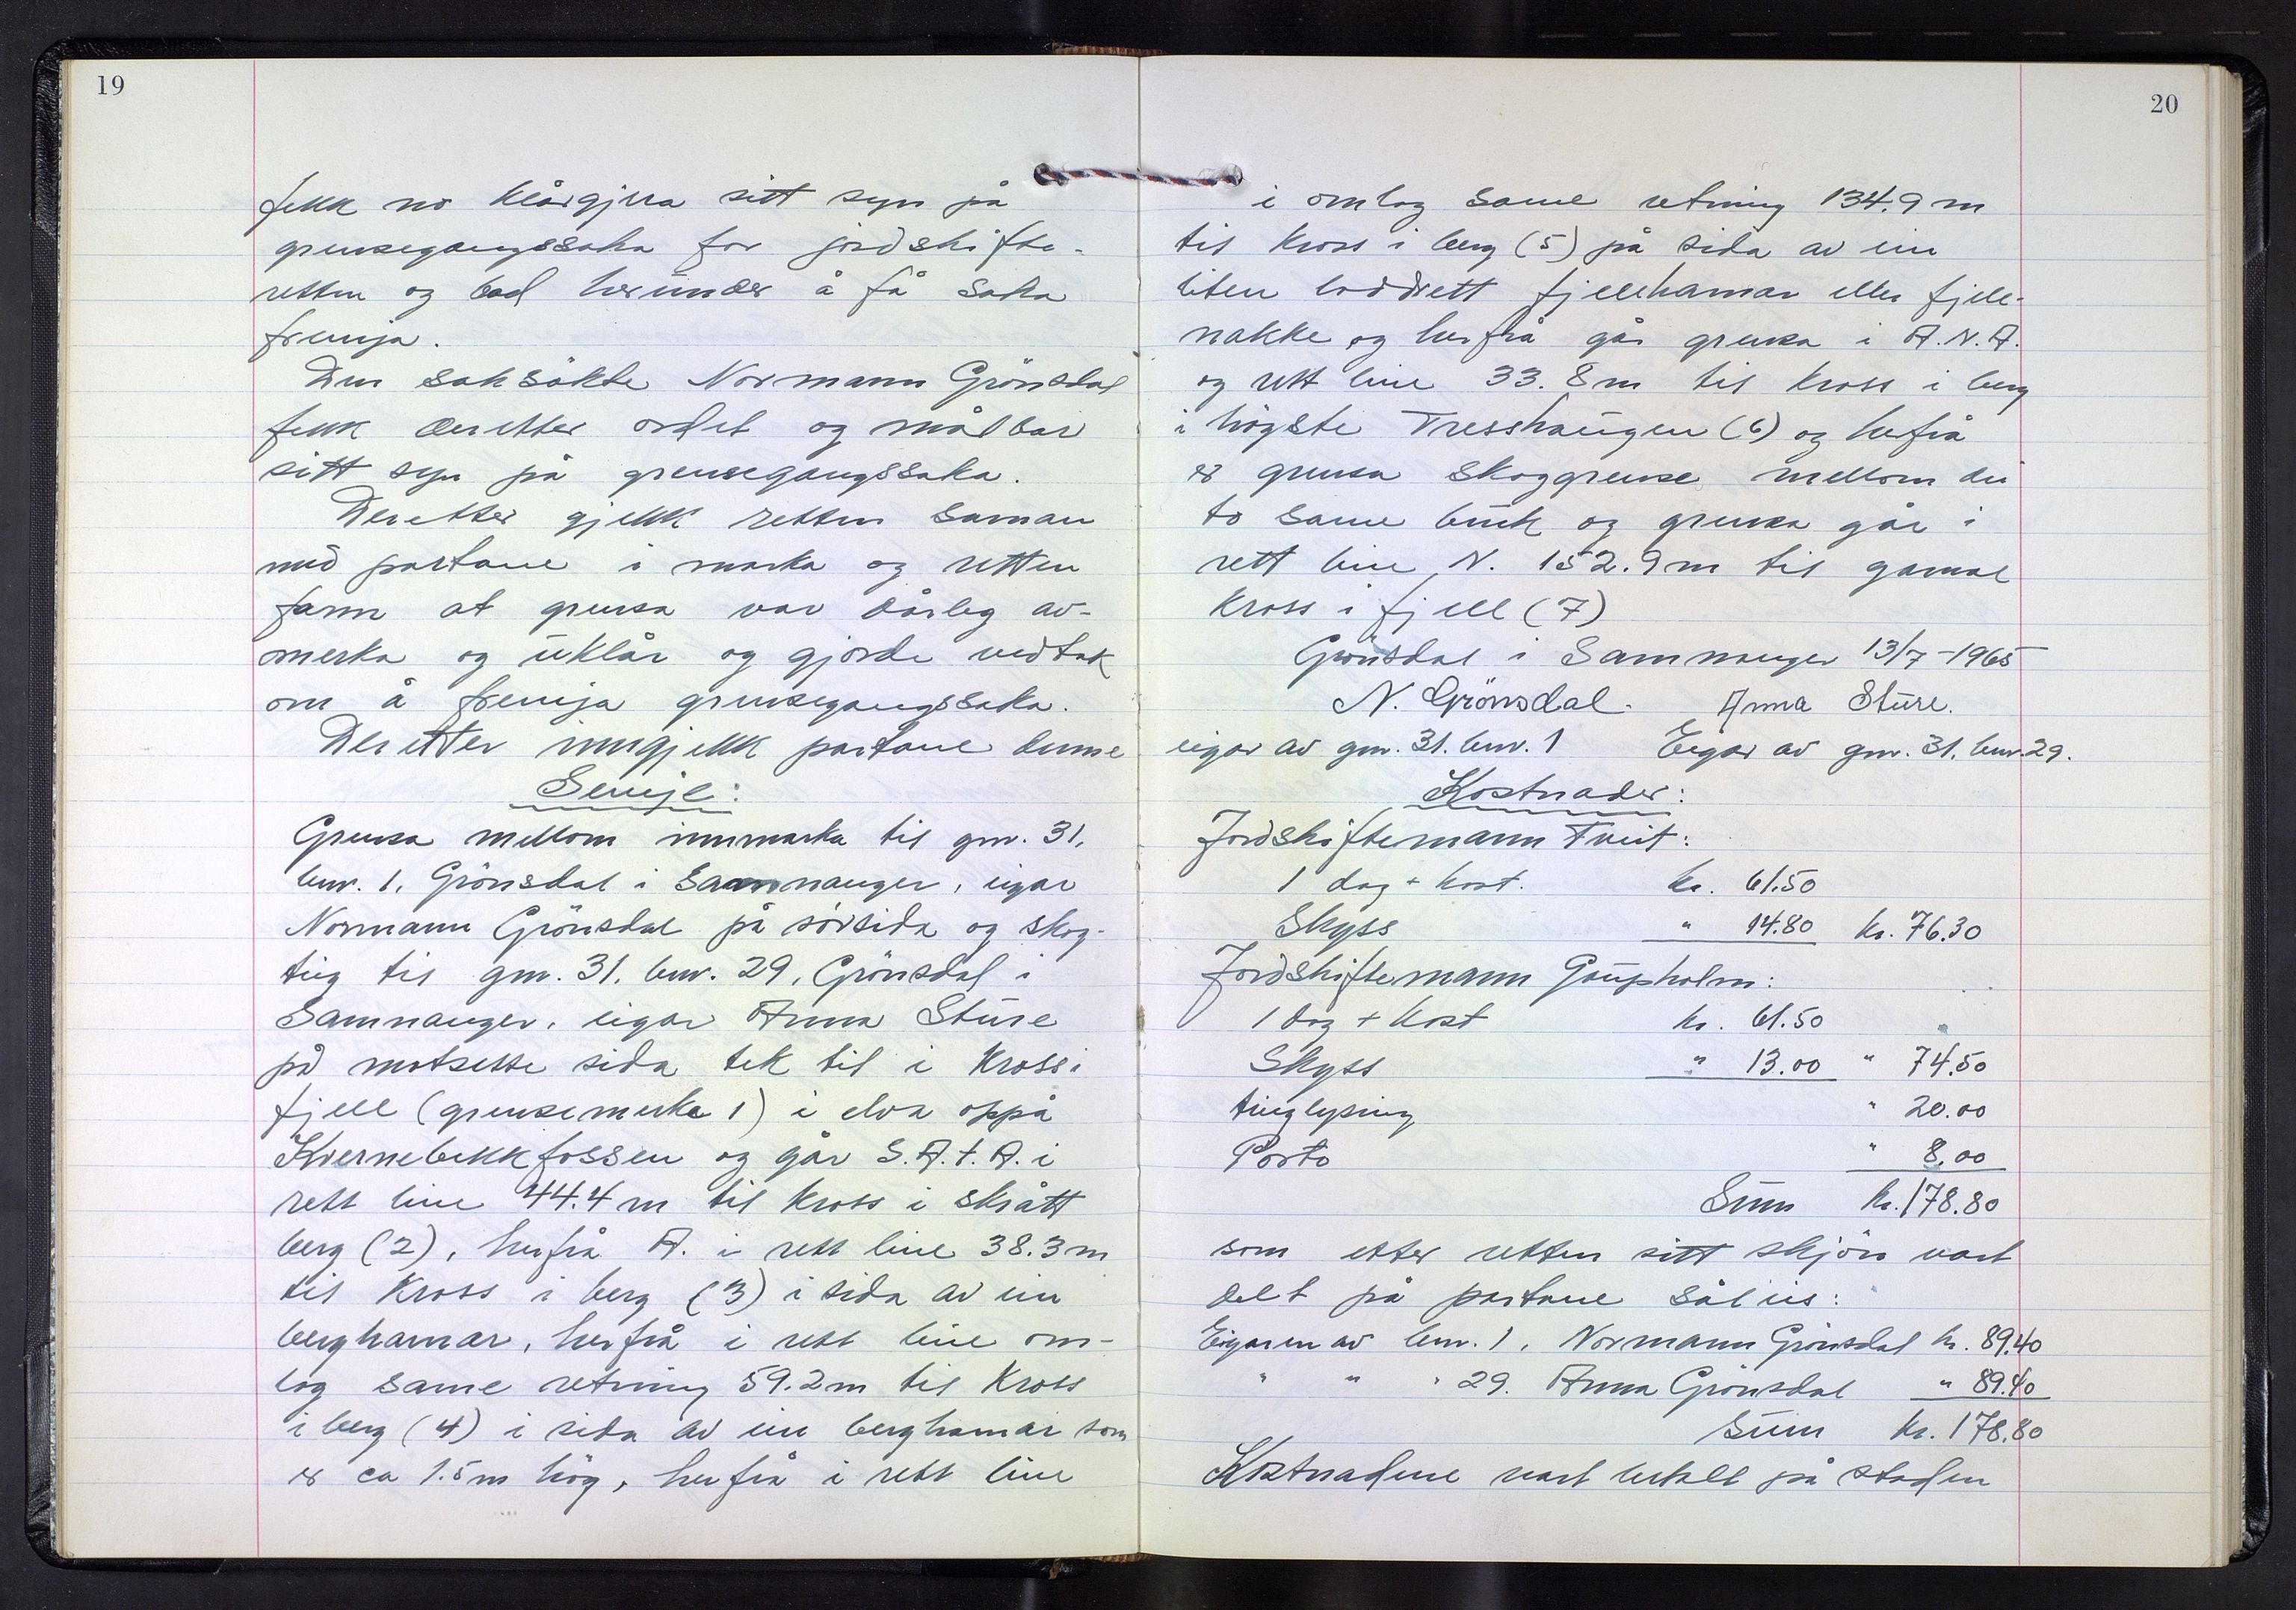 19
fekk no klårgjera sitt syn på
grensegangssaka for jordskifte-
retten og bad herunder å få saka
fremja.
Den saksökte Normann Grönsdal
fekk deretter ordet og målbar
sitt syn på grensegangssaka.
Deretter gjekk retten saman
med partane i marka og retten
fann at grensa var dårleg av-
merka og uklår og gjorde vedtak
om å fremja grensegangssaka.
Deretter inngjekk partane denne
Semje:
Grensa mellom innmarka til gnr. 31,
bnr. 1, Grönsdal i Samnanger, eigar
Normann Grönsdal på sörsida og skog-
teig til gnr. 31. bnr. 29, Grönsdal i
Samnanger, eigar Anna Sture
på motsette sida tek til i Kross i
fjell (grensemerke 1) i elva oppå
Kvernebekkfossen og går S.A.t.A. i
rett line 44.4 m til kross i skrått
berg (2), herfrå A. i rett line 38.3 m
til Kross i berg (3) i sida av ein
berghamar, herfrå i rett line om-
lag same retning 59.2 m til Kross
i berg (4) i sida av ein berghamar som
er ca 1.5 m hög, herfrå i rett line
20
i omlag same retning 134.9 m
til Kross i berg (5) på sida av ein
liten loddrett fjellhamar eller fjell-
nakke og herfrå går grensa i A.N.A.
og rett line 33.8 m til Kross i berg
i högste Tresshaugen (6) og herfrå
er grensa skoggrense mellom dei
to same bruk og grensa går i
rett line N. 152.9 m til gamal
Kross i fjell (7)
Grönsdal i Samnanger 13/7-1965
N. Grönsdal. Anna Sture.
eigar av gnr. 31. bnr. 1 Eigar av gnr. 31. bnr. 29.
Kostnader:
Jordskiftemann Tveit:
1 dag + kost. kr. 61.50
Skyss " 14.80 kr. 76.30
Jordskiftemann Gaupholm:
1 dag + kost kr. 61.50
Skyss " 13.00 " 74.50
tinglysing " 20.00
Porto " 8.00
Sum kr. 178.80
som etter retten sitt skjön vart
delt på partane såleis:
Eigaren av bnr. 1, Normann Grönsdal kr. 89.40
" " " 29. Anna Grönsdal " 89.40
Sum kr. 178.80
Kostnadene vart betalt på staden